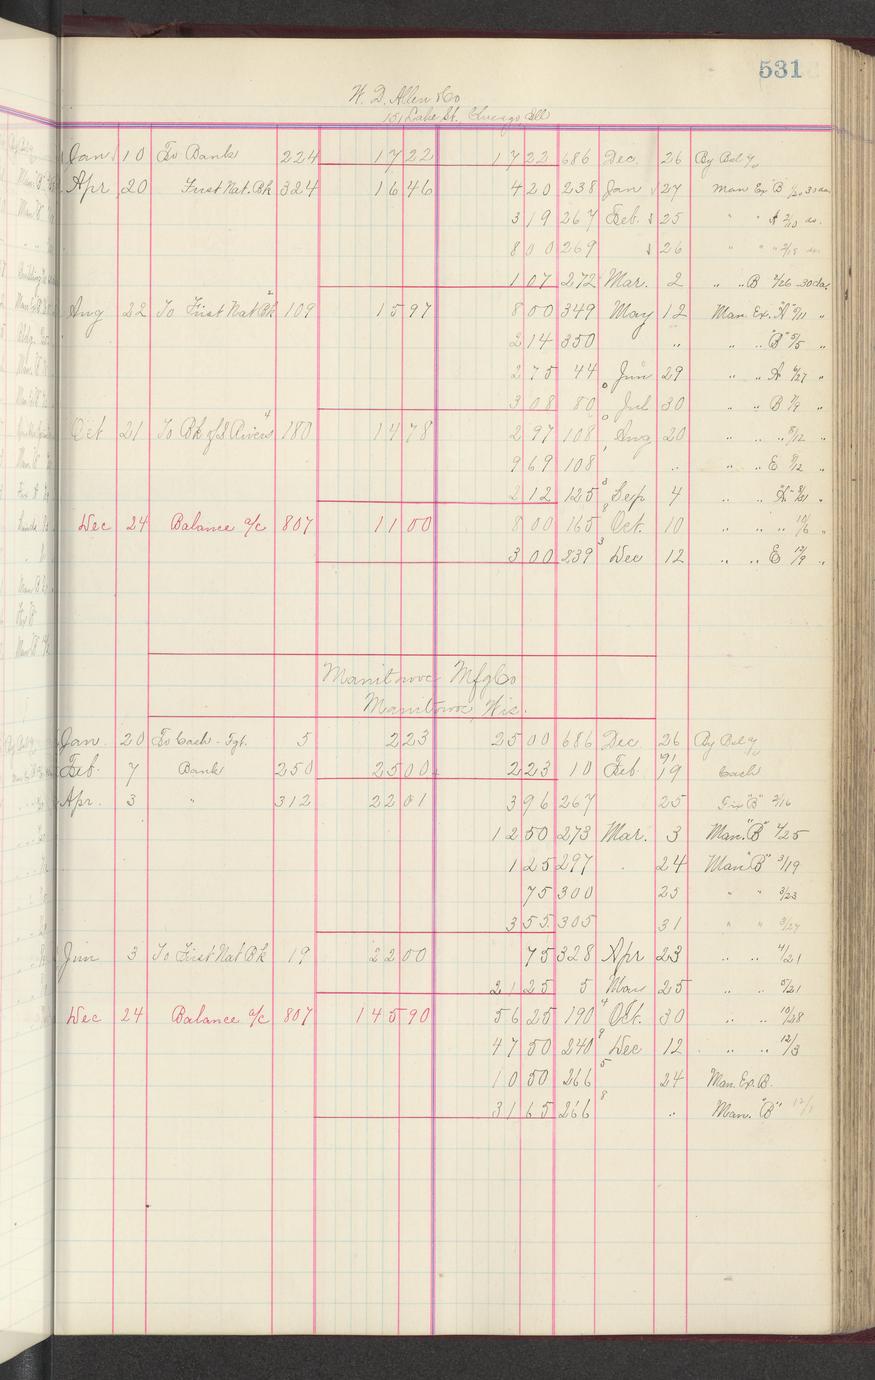 531
W. D. Allen & Co
151 Lake St. Chicago Ill
Jan 10 To Bank 224 17 22 17 22 686 Dec. 26 By Bal
Apr 20 First Nat. Bk 324 16 46 4 20 238 Jan 27 Man Ex "B" 30 da
3 19 267 Feb. 25 " " A 2/10 do.
8 00 269 26 " " " 2/19 do
1 07 272 Mar. 2 " " B 2/26 30 da
Aug 22 To First Nat Bk 109 15 97 8 00 349 May 12 Man. Ex. "A" "
2 14 350 " " " "B" 5/5 "
2 75 44 Jun 29 " " A 6/27 "
3 08 80 Jul 30 " " B "
Oct 21 To Bk of 3 Rivers 180 14 78 2 97 108 Aug 20 " " " 8/12 "
9 69 108 " " " E 8/12 "
2 12 125 Sep 4 " " "A" 8/31 "
Dec 24 Balance a/c 807 11 00 8 00 165 Oct. 10 " " " 10/6 "
3 00 239 Dec 12 " " E 12/9 "
Manitowoc Mfg Co
Manitowoc, Wis.
Jan. 20 To Cash - Fgt. 5 2 23 25 00 686 Dec 26 By Bal
Feb. 7 Bank 250 25 00 2 23 10 Feb 19 Cash
Apr. 3 " 312 22 01 3 96 267 25 "B" 2/16
12 50 273 Mar. 3 Man. "B"
1 25 297 24 Man "B" 3/19
75 300 25 " " 3/23
3 55 305 31 " " 3/27
Jun 3 To First Nat Bk 19 22 00 75 328 Apr 23 " " 4/21
21 25 5 May 25 " " 5/21
Dec 24 Balance a/c 807 145 90 56 25 190 Oct. 30 " " 10/28
47 50 240 Dec 12 " " 12/3
10 50 266 24 Man. Ex. B.
31 65 266 " Man. "B"